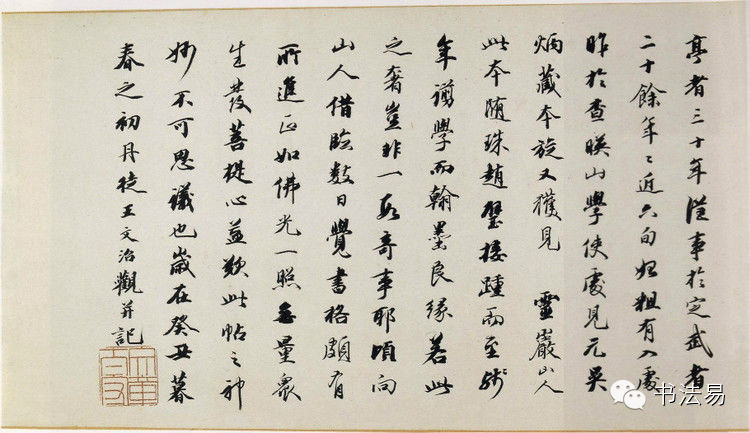 亭者三十年從事於定武者
二十餘年〻近六旬始粗有入處
昨於查暎山學使處見元吳
炳藏本旋又獲見 靈巖山人
此本隨珠趙璧接踵而至殘
年謭學而翰墨良緣若此
之奢豈非一段奇事耶頃向
山人借臨數日覺書格頗有
所進正如佛光一照無量眾
生發菩提心益歎此帖之神
妙不可思議也歲在癸丑暮
春之初丹徒王文治觀并記
书法易